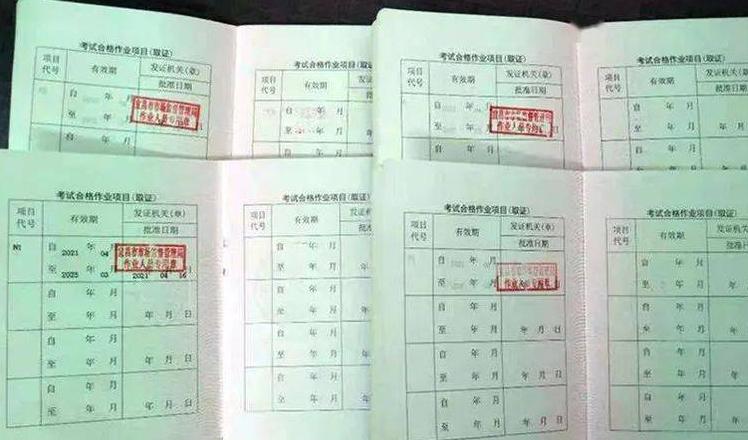 考试合格作业项目(取证)
项目代号 有效期 发证机关(章)
批准日期
自 年 月
宜昌市市场监督管理局
作业人员专用章
至 年 月
自 年 月
考试合格作业项目(取证)
项目代号 有效期
自 年 月
至 年 月
自 年 月
考试合格作业项目(取证)
项目代号 有效期 发证机关(章)
批准日期
自 年 月
作业人员专用章
至 年 月
自 年 月
考试合格作业项目(取证)
项目代号 有效期 发证机关(章)
批准日期
自 年 月
至 年 月
自 年 月
考试合格作业项目(取证)
项目代号 有效期 发证机关(章)
批准日期
N1 自 2021 年 04
宜昌市市场监督管理局
作业人员专用章
至 2025 年 03 2021 04 16
自 年 月
至 年 月 年 月 日
自 年 月
至 年 月 年 月 日
自 年 月
至 年 月 年 月 日
考试合格作业项目(取证)
项目代号 有效期
自 年 月
至 年 月 年
自 年 月
至 年 月 年
自 年 月
至 年 月 年
自 年 月
至 年 月 年
考试合格作业项目(取证)
项目代号 有效期 发证机关(章)
批准日期
自 年 月
至 年 月
自 年 月
至 年 月 年 月 日
自 年 月
至 年 月 年 月 日
自 年 月
至 年 月 年 月 日
考试合格作业项目(取证)
项目代号 有效期 发证机关(章)
批准日期
自 年 月
至 年 月 年 月 日
自 年 月
至 年 月 年 月 日
自 年 月
至 年 月 年 月 日
自 年 月
至 年 月 年 月